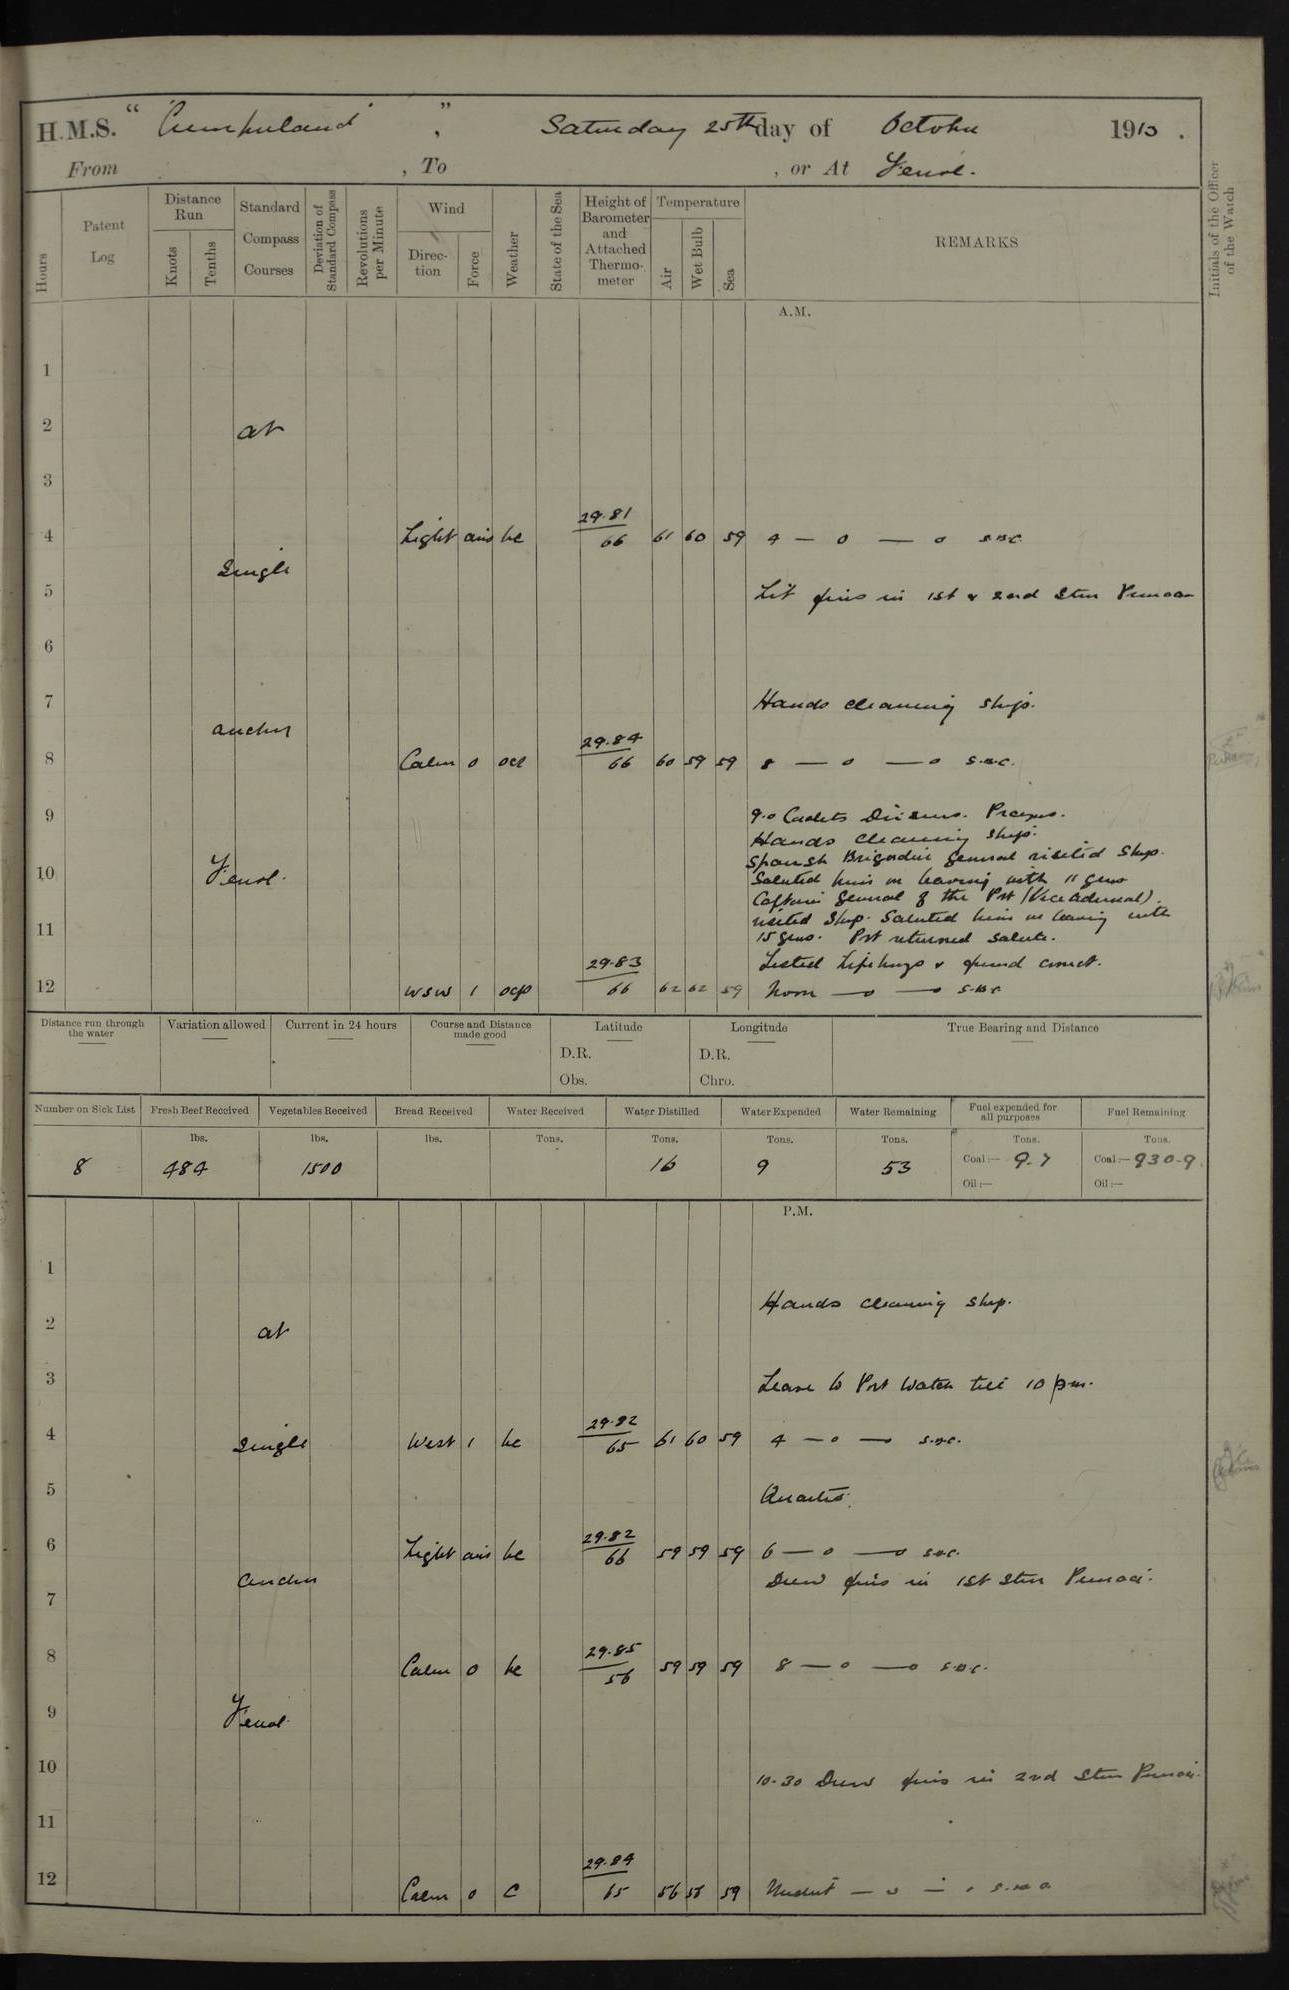 H.M.S. "Cumberland", Saturday 25th day of October 1913.
From , To , or At Ferrol.
Hours
Patent Log
Distance Run
Knots
Tenths
Standard Compass Courses
Deviation of Standard Compass
Revolutions per Minute
Wind
Direction
Force
Weather
State of the Sea
Height of Barometer and Attached Thermometer
Temperature
Air
Wet Bulb
Sea
REMARKS
Initials of the Officer of the Watch
A.M.
1
2 at
3
4 Light airs bc 29.81 66 61 60 59 4 — o — o s.b.c.
Single
5 Lit fires in 1st & 2nd Stm Pinnace
6
7 Hands cleaning ship.
anchor
8 Calm 0 oce 29.84 66 60 59 59 8 — o — o s.b.c.
9 9.0 Cadets Divisions. Prayers.
Hands cleaning ship.
Spanish Brigadier General visited Ship.
10 Ferrol. Saluted him on leaving with 11 guns
Captain General of the Port (Vice Admiral).
visited Ship. Saluted him on leaving with
11 15 guns. Port returned salute.
Tested Lifebuoys & found correct.
12 WSW 1 ocp 29.83 66 62 62 59 Noon — o — o s.b.c.
Distance run through the water
Variation allowed
Current in 24 hours
Course and Distance made good
Latitude
D.R.
Obs.
Longitude
D.R.
Chro.
True Bearing and Distance
Number on Sick List
Fresh Beef Received
Vegetables Received
Bread Received
Water Received
Water Distilled
Water Expended
Water Remaining
Fuel expended for all purposes
Fuel Remaining
lbs. lbs. lbs. Tons. Tons. Tons. Tons. Tons. Tons.
8 484 1500 16 9 53 Coal:— 9.7 Coal:— 930.9
Oil:— Oil:—
P.M.
1
Hands cleaning ship.
2 at
3 Leave to Port Watch till 10 p.m.
4 Single West 1 bc 29.82 65 61 60 59 4 — o — s.b.c.
5 Quarters.
6 Light airs bc 29.82 66 59 59 59 6 — o — o s.b.c.
anchor Drew fires in 1st Stm Pinnace.
7
8 Calm 0 bc 29.85 56 59 59 59 8 — o — o s.b.c.
9 Ferrol.
10 10.30 Drew fires in 2nd Stm Pinnace.
11
12 Calm 0 c 29.84 65 56 55 59 Midnt — o — o s.b.c.